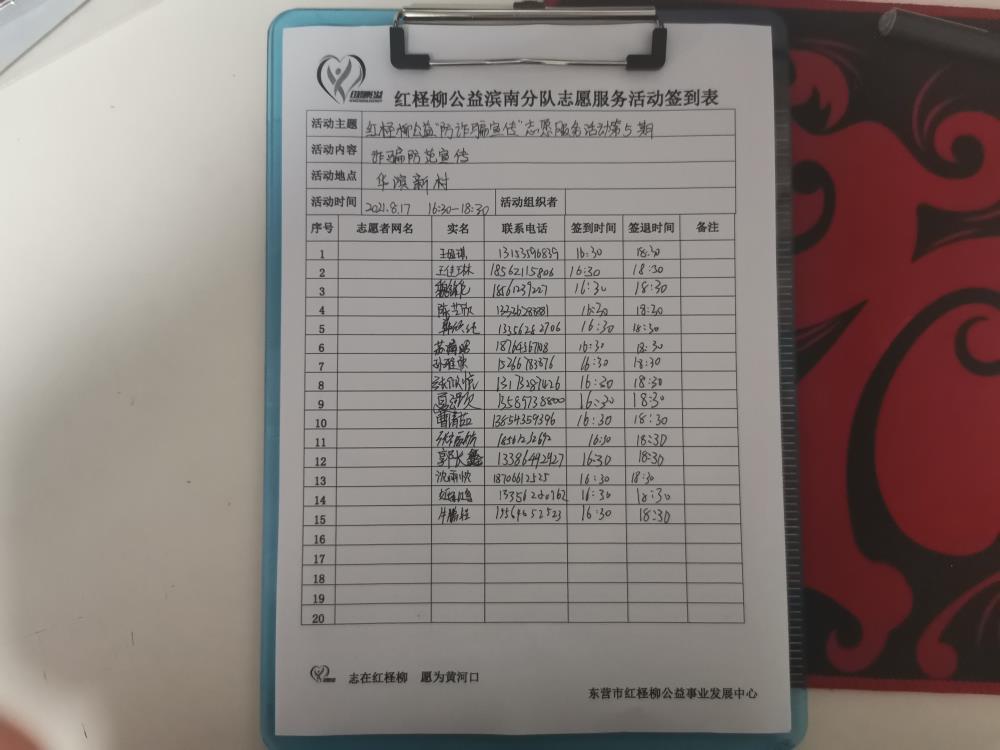 红柽柳公益滨南分队志愿服务活动签到表
活动主题 红柽柳公益"防诈骗宣传"志愿服务活动第5期
活动内容 诈骗防范宣传
活动地点 华滨新村
活动时间 2021.8.17 16:30-18:30 活动组织者
序号 志愿者网名 实名 联系电话 签到时间 签退时间 备注
1 16:30 18:30
2 18562115806 16:30 18:30
3 18561239227 16:30 18:30
4 16:30 18:30
5 13356282706 16:30 18:30
6 16:30 18:30
7 15266783676 16:30 18:30
8 13173287426 16:30 18:30
9 13589738800 16:30 18:30
10 曹清茹 13854359396 16:30 18:30
11 16:30 18:30
12 郭长鑫 13386492927 16:30 18:30
13 沈雨欣 18706612525 16:30 18:30
14 16:30 18:30
15 16:30 18:30
16
17
18
19
20
志在红柽柳 愿为黄河口
东营市红柽柳公益事业发展中心